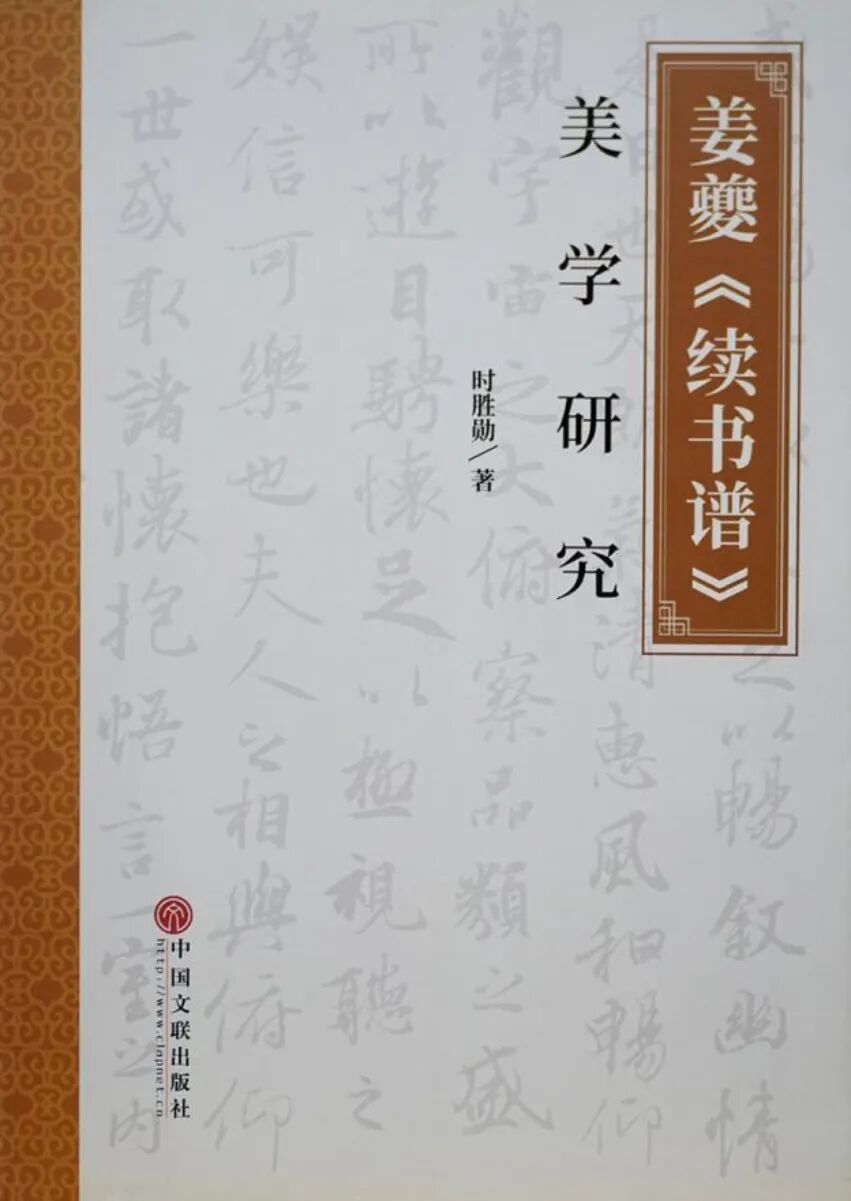 姜夔《续书谱》
美学研究
时胜勋/著
以暢叙幽情
是日也天朗氣清惠風和暢仰
觀宇宙之大俯察品類之盛
所以遊目騁懷足以極視聽之
娛信可樂也夫人之相與俯仰
一世或取諸懷抱悟言一室之内
中国文联出版社
http://www.clapnet.cn